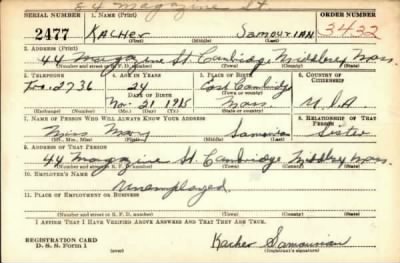 84 Magazine St.
SERIAL NUMBER 1. NAME (Print) ORDER NUMBER
2477 Kacher Samourian 3432
(First) (Middle) (Last)
2. ADDRESS (Print)
44 Magazine St. Cambridge Middlesex Mass.
(Number and street or R. F. D. number) (Town) (County) (State)
3. TELEPHONE 4. AGE IN YEARS 5. PLACE OF BIRTH 6. COUNTRY OF CITIZENSHIP
2736 24 East Cambridge
DATE OF BIRTH (Town or county)
Nov. 21 1915 Mass. U.S.A.
(Exchange) (Number) (Mo.) (Day) (Yr.) (State or country)
7. NAME OF PERSON WHO WILL ALWAYS KNOW YOUR ADDRESS 8. RELATIONSHIP OF THAT PERSON
Miss Mary Samourian Sister
(Mr., Mrs., Miss) (First) (Middle) (Last)
9. ADDRESS OF THAT PERSON
44 Magazine St. Cambridge Middlesex Mass.
(Number and street or R. F. D. number) (Town) (County) (State)
10. EMPLOYER'S NAME
Unemployed
11. PLACE OF EMPLOYMENT OR BUSINESS
(Number and street or R. F. D. number) (Town) (County) (State)
I AFFIRM THAT I HAVE VERIFIED ABOVE ANSWERS AND THAT THEY ARE TRUE.
REGISTRATION CARD
D. S. S. Form 1
Kacher Samourian
(Registrant's signature)